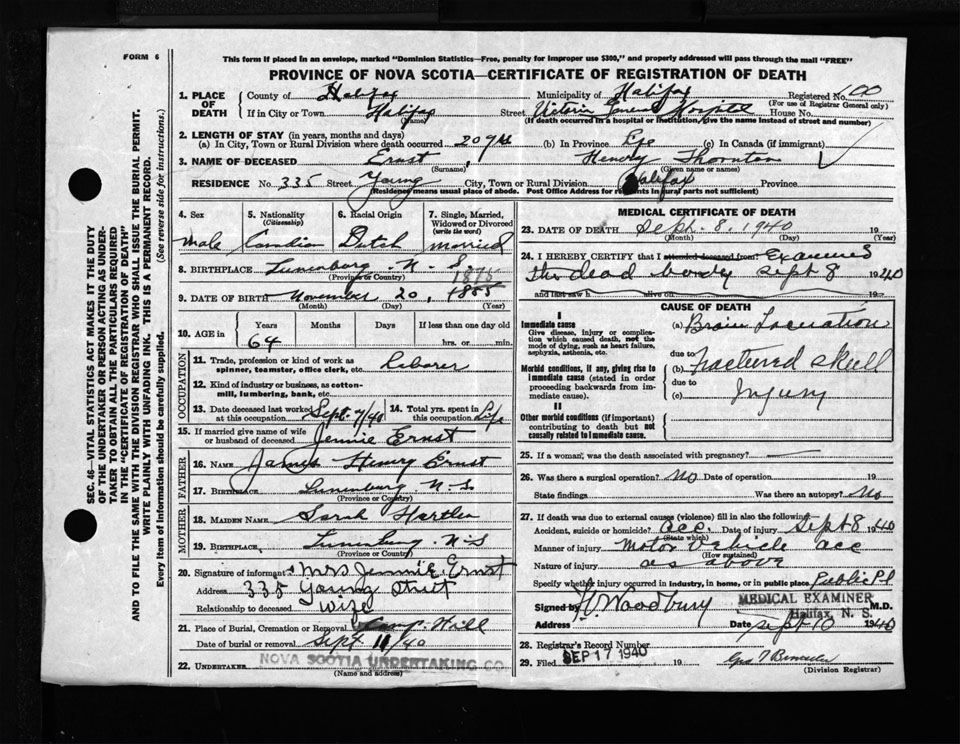 FORM 6
This form if placed in an envelope, marked "Dominion Statistics—Free, penalty for improper use $300," and properly addressed will pass through the mail "FREE"
PROVINCE OF NOVA SCOTIA—CERTIFICATE OF REGISTRATION OF DEATH
1. PLACE OF DEATH
County of Halifax Municipality of Halifax Registered No. 00
(For use of Registrar General only)
If in City or Town Halifax (Name) Street Victoria General Hospital House No.
(If death occurred in a hospital or institution, give the name instead of street and number)
2. LENGTH OF STAY (in years, months and days)
(a) In City, Town or Rural Division where death occurred 20 yrs (b) In Province Life (c) In Canada (if immigrant)
3. NAME OF DECEASED Ernst, Henry Thornton
(Surname) (Given name or names)
RESIDENCE No. 335 Street Young City, Town or Rural Division Halifax Province
(Residence means usual place of abode. Post Office Address for residents in rural parts not sufficient)
4. Sex
male
5. Nationality (Citizenship)
Canadian
6. Racial Origin
Dutch
7. Single, Married, Widowed or Divorced (write the word)
married
8. BIRTHPLACE Lunenburg N. S
(Province or Country)
1875
9. DATE OF BIRTH November 20, 1885
(Month) (Day) (Year)
10. AGE in Years Months Days If less than one day old
64 hrs. or min.
OCCUPATION
11. Trade, profession or kind of work as spinner, teamster, office clerk, etc. Laborer
12. Kind of industry or business, as cotton-mill, lumbering, bank, etc.
13. Date deceased last worked at this occupation Sept 7/40
14. Total yrs. spent in this occupation Life
15. If married give name of wife or husband of deceased Jennie Ernst
FATHER
16. NAME James Henry Ernst
17. BIRTHPLACE Lunenburg N-S
(Province or Country)
MOTHER
18. MAIDEN NAME Sarah
19. BIRTHPLACE Lunenburg N-S
(Province or Country)
20. Signature of informant Mrs Jennie Ernst
Address 335 Young Street
Relationship to deceased wife
21. Place of Burial, Cremation or Removal Camp Hill
Date of burial or removal Sept 11/40
22. UNDERTAKER NOVA SCOTIA UNDERTAKING CO.
(Name and address)
MEDICAL CERTIFICATE OF DEATH
23. DATE OF DEATH Sept. 8. 1940 19
(Month) (Day) (Year)
24. I HEREBY CERTIFY that I attended deceased from Examined
the dead body Sept 8 1940
and last saw h alive on 19
CAUSE OF DEATH
I
Immediate cause
Give disease, injury or complication which caused death, not the mode of dying, such as heart failure, asphyxia, asthenia, etc.
(a) Brain Laceration
due to
Morbid conditions, if any, giving rise to immediate cause (stated in order proceeding backwards from immediate cause).
(b) Fractured Skull
due to
(c) Injury
II
Other morbid conditions (if important) contributing to death but not causally related to immediate cause.
25. If a woman, was the death associated with pregnancy?
26. Was there a surgical operation? No Date of operation 19
State findings Was there an autopsy? No
27. If death was due to external causes (violence) fill in also the following:
Accident, suicide or homicide? acc. Date of injury Sept 8 1940
(State which)
Manner of injury Motor Vehicle acc
(How sustained)
Nature of injury as above
Specify whether injury occurred in industry, in home, or in public place Public Pl
Signed by Woodbury MEDICAL EXAMINER M.D.
Halifax, N. S.
Address Date Sept 10 1940
28. Registrar's Record Number
29. Filed SEP 17 1940 19
(Division Registrar)
SEC. 46—VITAL STATISTICS ACT MAKES IT THE DUTY
OF THE UNDERTAKER OR PERSON ACTING AS UNDER-
TAKER TO OBTAIN ALL THE PARTICULARS REQUIRED
IN THE "CERTIFICATE OF REGISTRATION OF DEATH"
AND TO FILE THE SAME WITH THE DIVISION REGISTRAR WHO SHALL ISSUE THE BURIAL PERMIT.
WRITE PLAINLY WITH UNFADING INK. THIS IS A PERMANENT RECORD.
Every item of information should be carefully supplied. (See reverse side for instructions.)